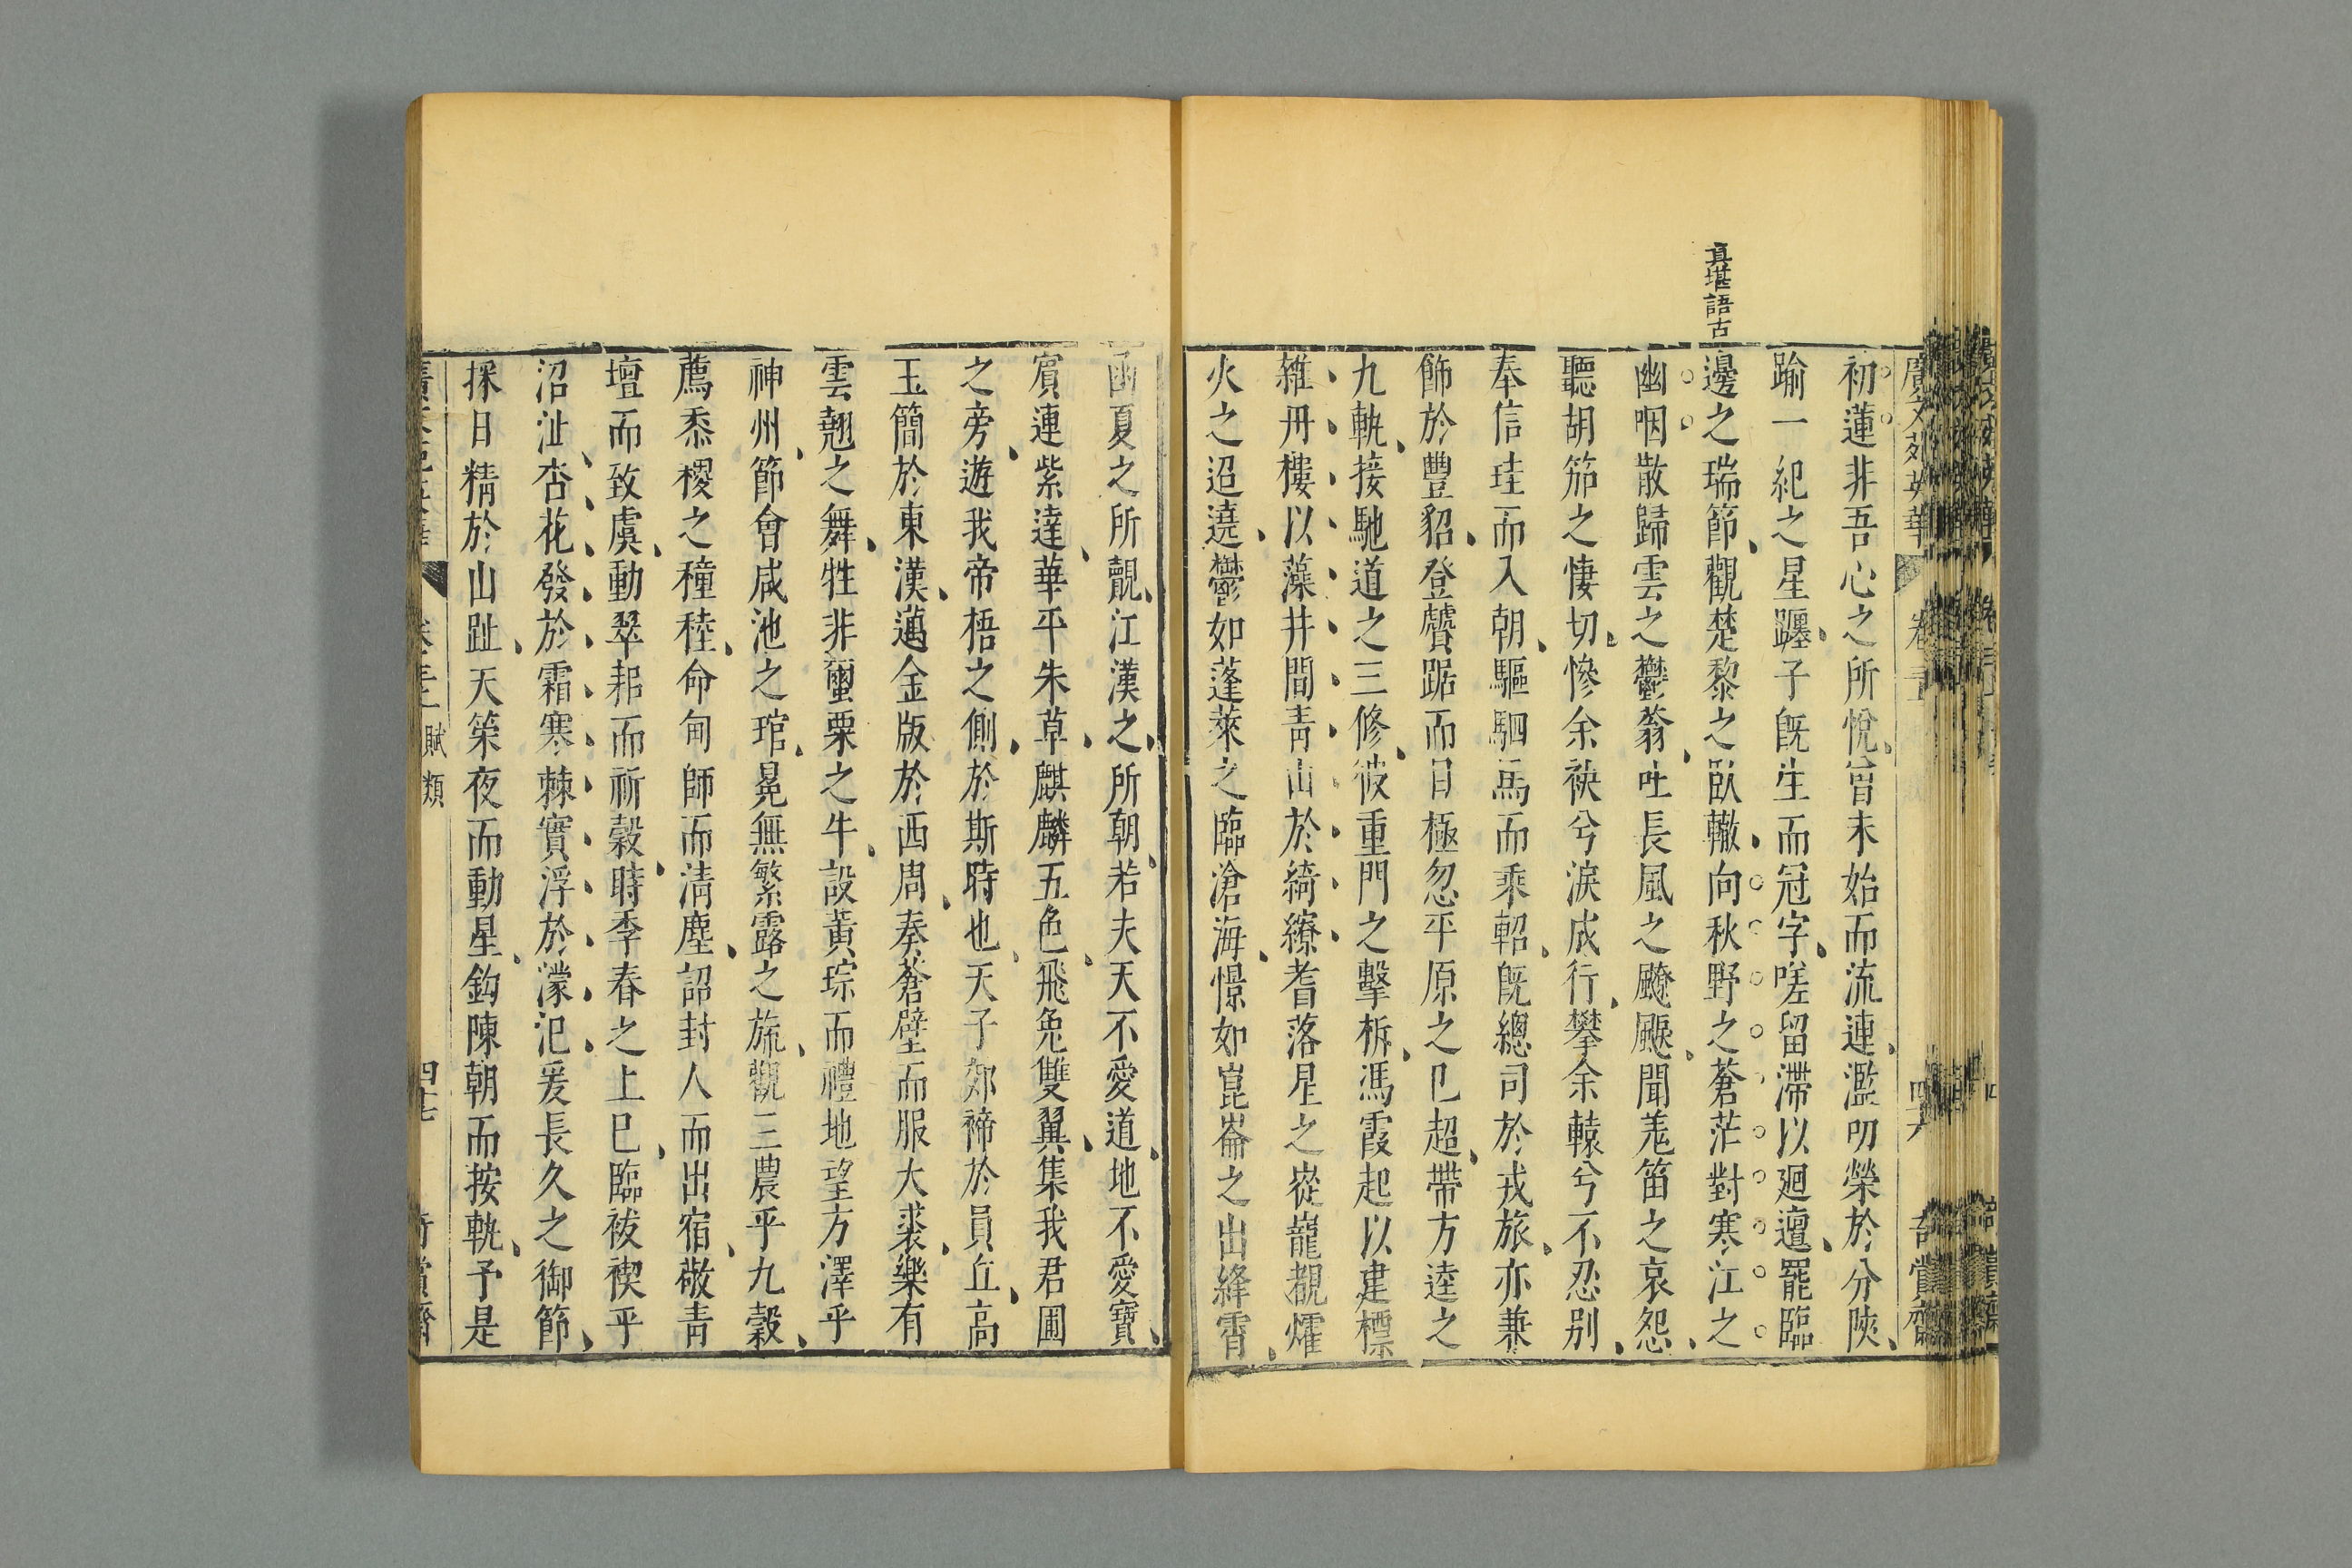 廣文苑英華 卷二十 四六 奇賞齋
初蓮非吾心之所悅曾未始而流連濫叨榮於分陝
踰一紀之星躔子旣生而冠字嗟留滯以廻邅罷臨
真堪語古
邊之瑞節觀楚黎之臥轍向秋野之蒼茫對寒江之
幽咽散歸雲之鬱蓊吐長風之飂颸聞羌笛之哀怨
聽胡笳之悽切慘余袂兮淚成行攀余轅兮不忍别
奉信珪而入朝驅駟馬而乘軺旣總司於戎旅亦兼
飾於豐貂登贊踞而目極忽平原之已超帶方逵之
九軌接馳道之三修彼重門之擊柝馮霞起以建標
雜丹樓以藻井間靑山於綺繚耆落星之嵸巃覩爟
火之迢遶鬱如蓬萊之臨滄海憬如崑崙之出絳霄
函夏之所覯江漢之所朝若夫天不愛道地不愛寶
賓連紫達華平朱草麒麟五色飛兔雙翼集我君圃
之旁遊我帝梧之側於斯時也天子郊禘於員丘高
玉簡於東漢邁金版於西周奏蒼壁而服大裘樂有
雲翹之舞牲非蠒栗之牛設黃琮而禮地望方澤乎
神州節會咸池之琯晃無繁露之旒觀三農乎九穀
薦黍稷之穜稑命甸師而淸塵詔封人而出宿敬靑
壇而致虞動翠耜而祈穀時季春之上巳臨祓禊乎
沼沚杏花發於霜寒棘實浮於濛汜爰長久之御節
採日精於山趾天策夜而動星鈎陳朝而按軌予是
卷二十 賦類 四七 奇賞齋